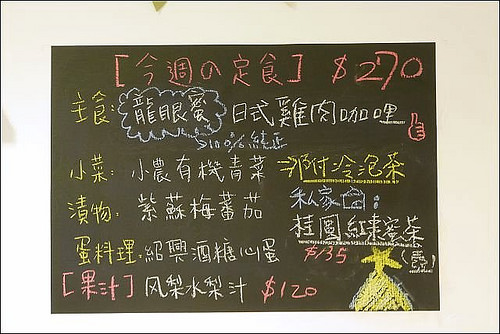 [今週の定食] $270
主食: 龍眼蜜 日式雞肉咖哩
100% 純正
小菜: 小農有機青菜 →附冷泡茶
漬物: 紫蘇梅蕃茄
私家
桂圓紅棗蜜茶
(熱)
$135
蛋料理: 紹興酒糖心蛋
[果汁] 风梨水梨汁 $120